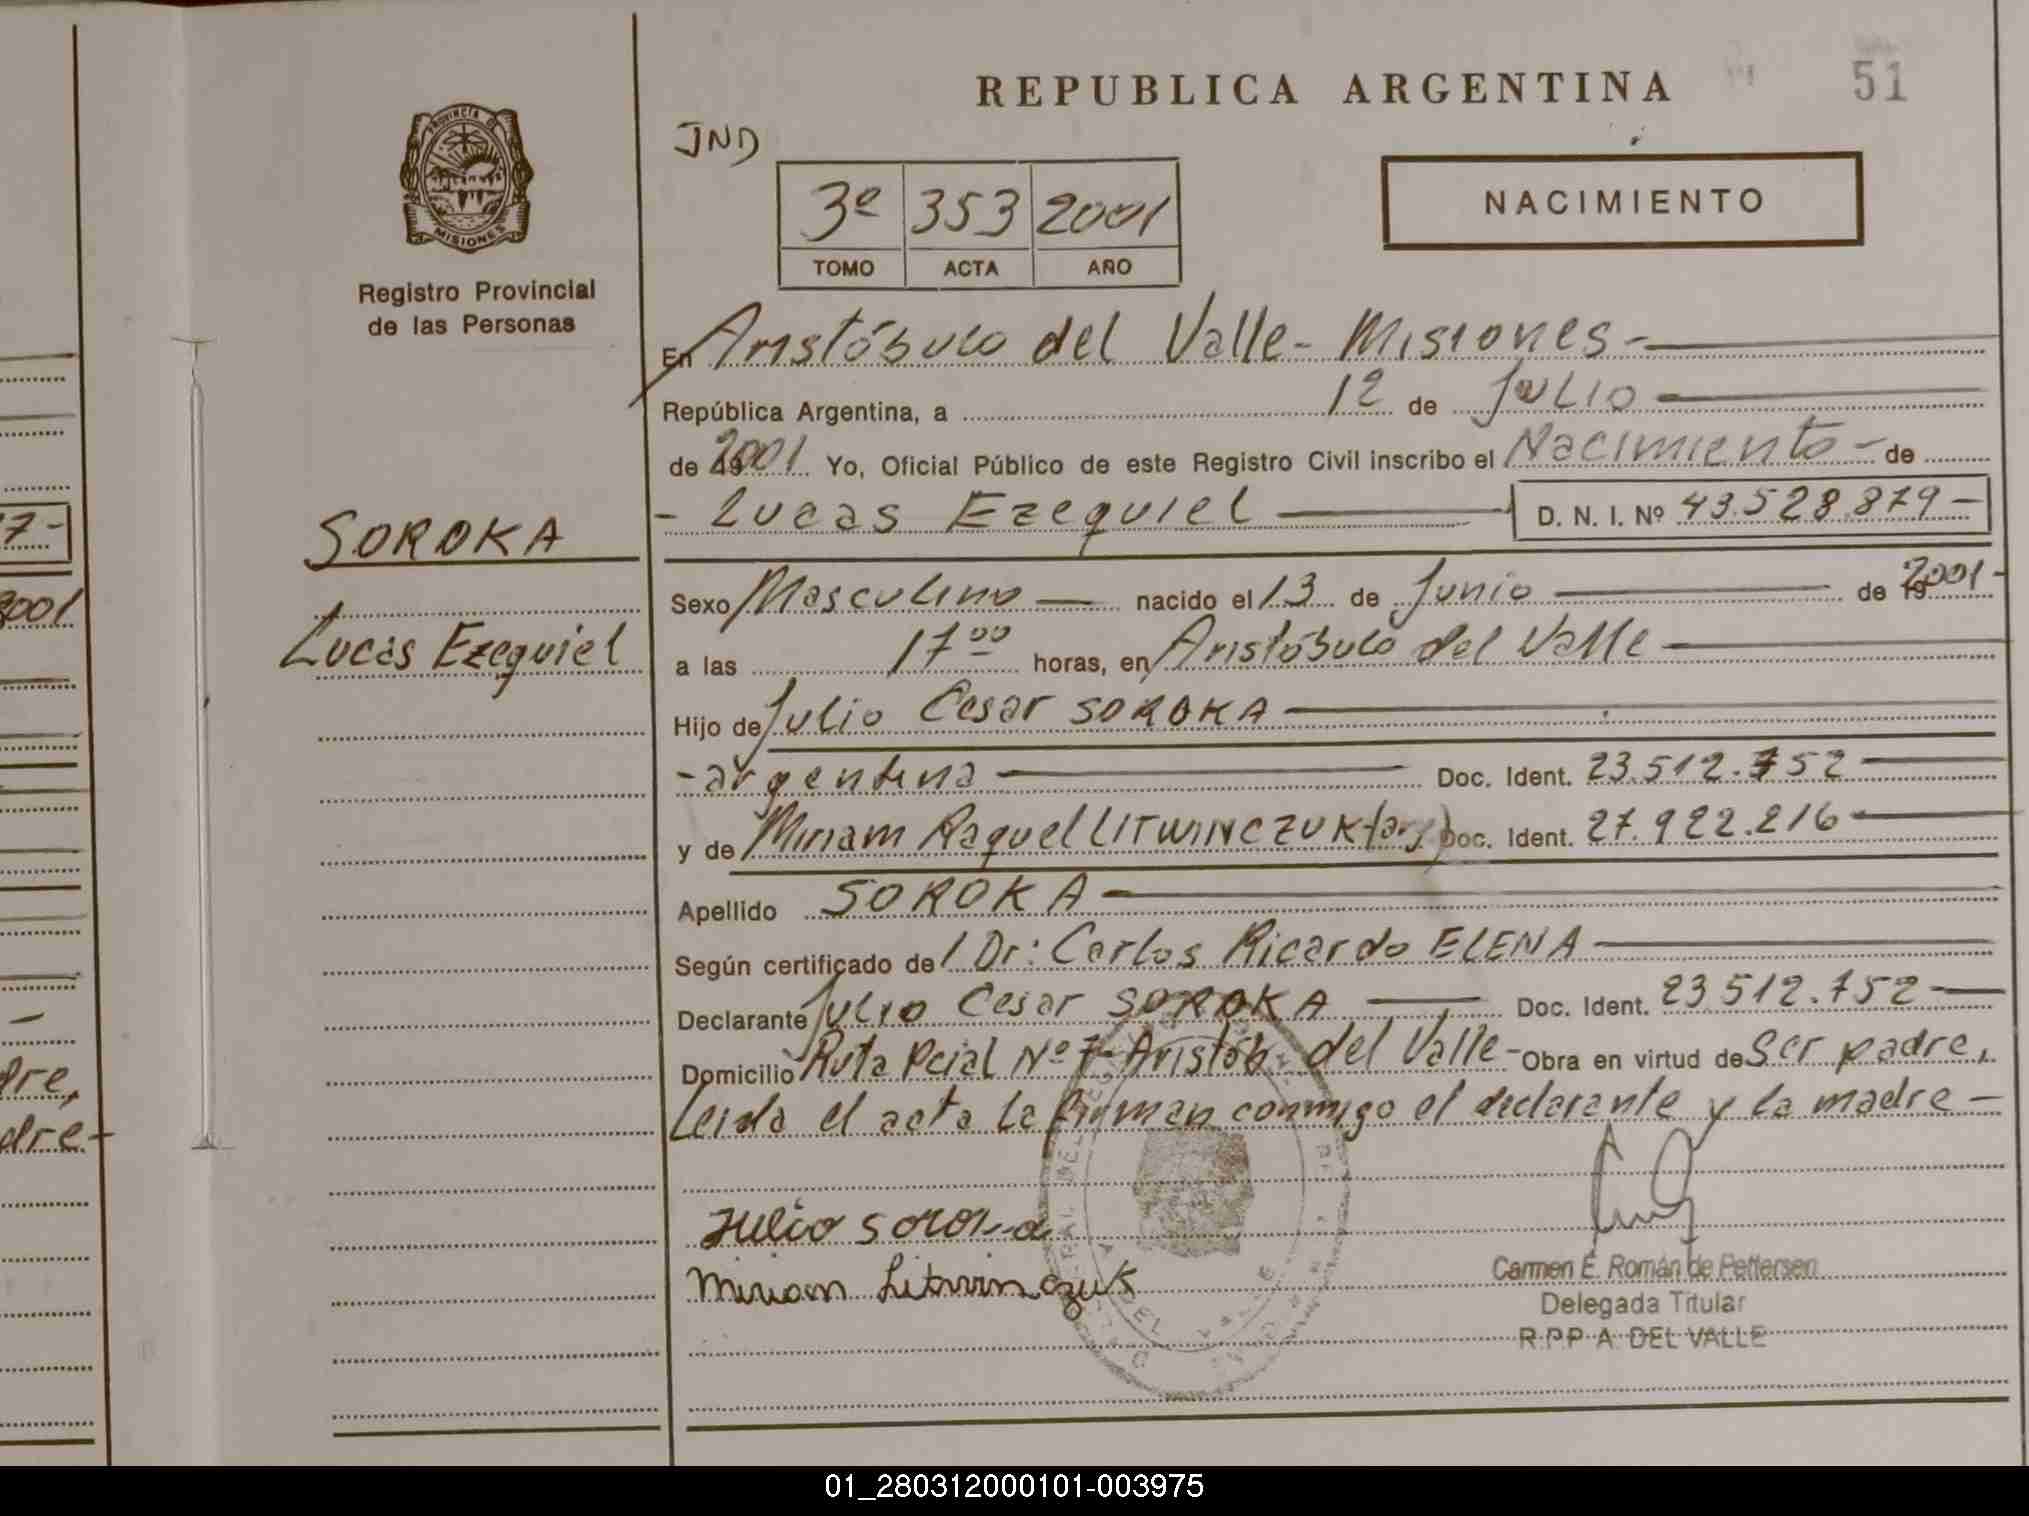 REPUBLICA ARGENTINA
51
JND
3º 353 2001
TOMO ACTA AÑO
NACIMIENTO
PROVINCIA DE
MISIONES
Registro Provincial
de las Personas
En Aristóbulo del Valle - Misiones -
República Argentina, a 12 de Julio
de 19 2001 Yo, Oficial Público de este Registro Civil inscribo el Nacimiento - de
- Lucas Ezequiel D. N. I. Nº 43.528.879 -
SOROKA
Lucas Ezequiel
Sexo Masculino nacido el 13 de Junio de 19 2001 -
a las 17 00 horas, en Aristóbulo del Valle
Hijo de Julio Cesar SOROKA
- argentina Doc. Ident. 23.512.752
y de Miriam Raquel LITWINCZUK (arg) Doc. Ident. 27.922.216
Apellido SOROKA
Según certificado del Dr: Carlos Ricardo ELENA
Declarante Julio Cesar SOROKA Doc. Ident. 23.512.752
Domicilio Ruta Pcial Nº 7 - Aristób. del Valle - Obra en virtud de Ser padre,
Leida el acta la firman conmigo el declarante y la madre -
Julio Soroka
Miriam Litwinczuk
Carmen E. Román de Pettersen
Delegada Titular
R.P.P. A. DEL VALLE
7-
2001
dre,
dre -
01_280312000101-003975